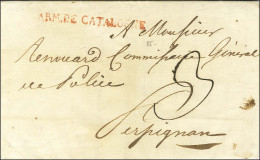 ARM. DE CATALOGNE
A Monsieur
Renouard Commissaire Général
de Police
3
Perpignan